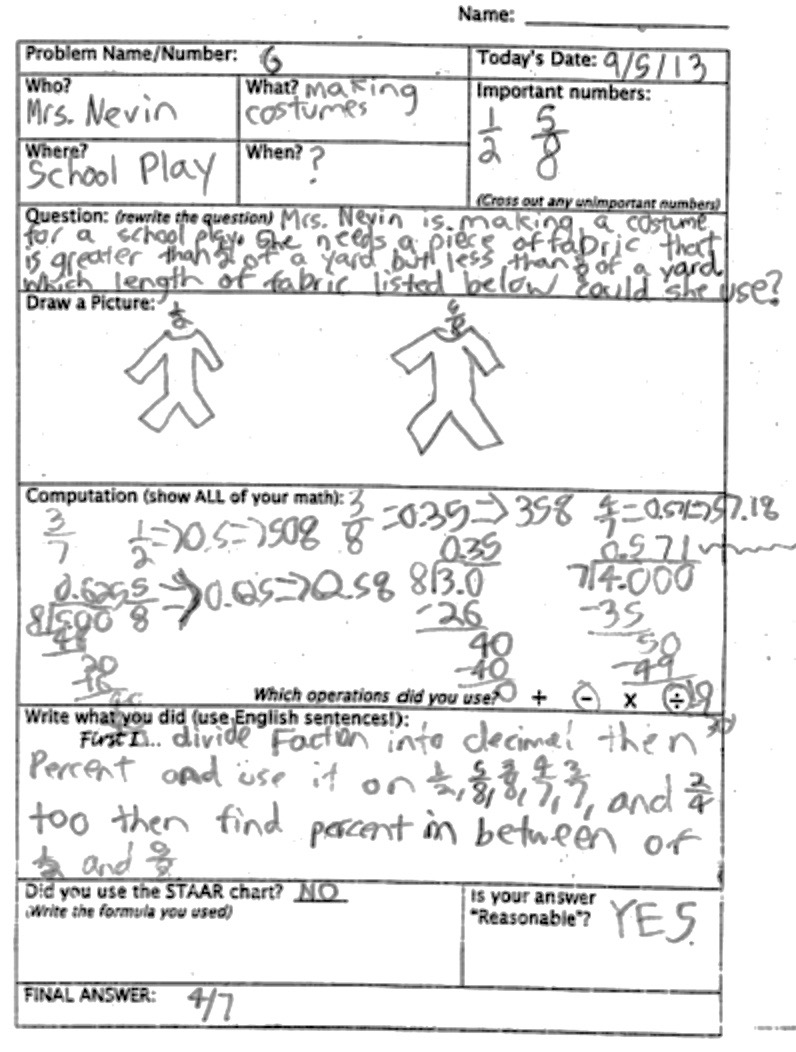 Name:
Problem Name/Number: 6
Today's Date: 9/5/13
Who?
Mrs. Nevin
What? making
costumes
Important numbers:
1/2 5/8
Where?
School Play
When? ?
(Cross out any unimportant numbers)
Question: (rewrite the question) Mrs. Nevin is making a costume
for a school play. She needs a piece of fabric that
is greater than 1/2 of a yard but less than 5/8 of a yard
which length of fabric listed below could she use?
Draw a Picture:
1/2
5/8
Computation (show ALL of your math):
3/7
1/2 => 0.5 => 508
3/8 = 0.35 => 358
4/7 = 0.571 => 57.18
0.35
8 3.0
-26
40
-40
0
0.571
7 4.000
-35
50
-49
0.625
5/8 => 0.625 => 0.58
8 500
48
20
16
Which operations did you use? + - x ÷
Write what you did (use English sentences!):
First I... divide Faction into decimal then
Percent and use it on 1/2, 5/8, 3/8, 4/7, 3/7, and 2/4
too then find percent in between of
1/2 and
Did you use the STAAR chart? NO
(Write the formula you used)
Is your answer
"Reasonable"? YES
FINAL ANSWER: 4/7